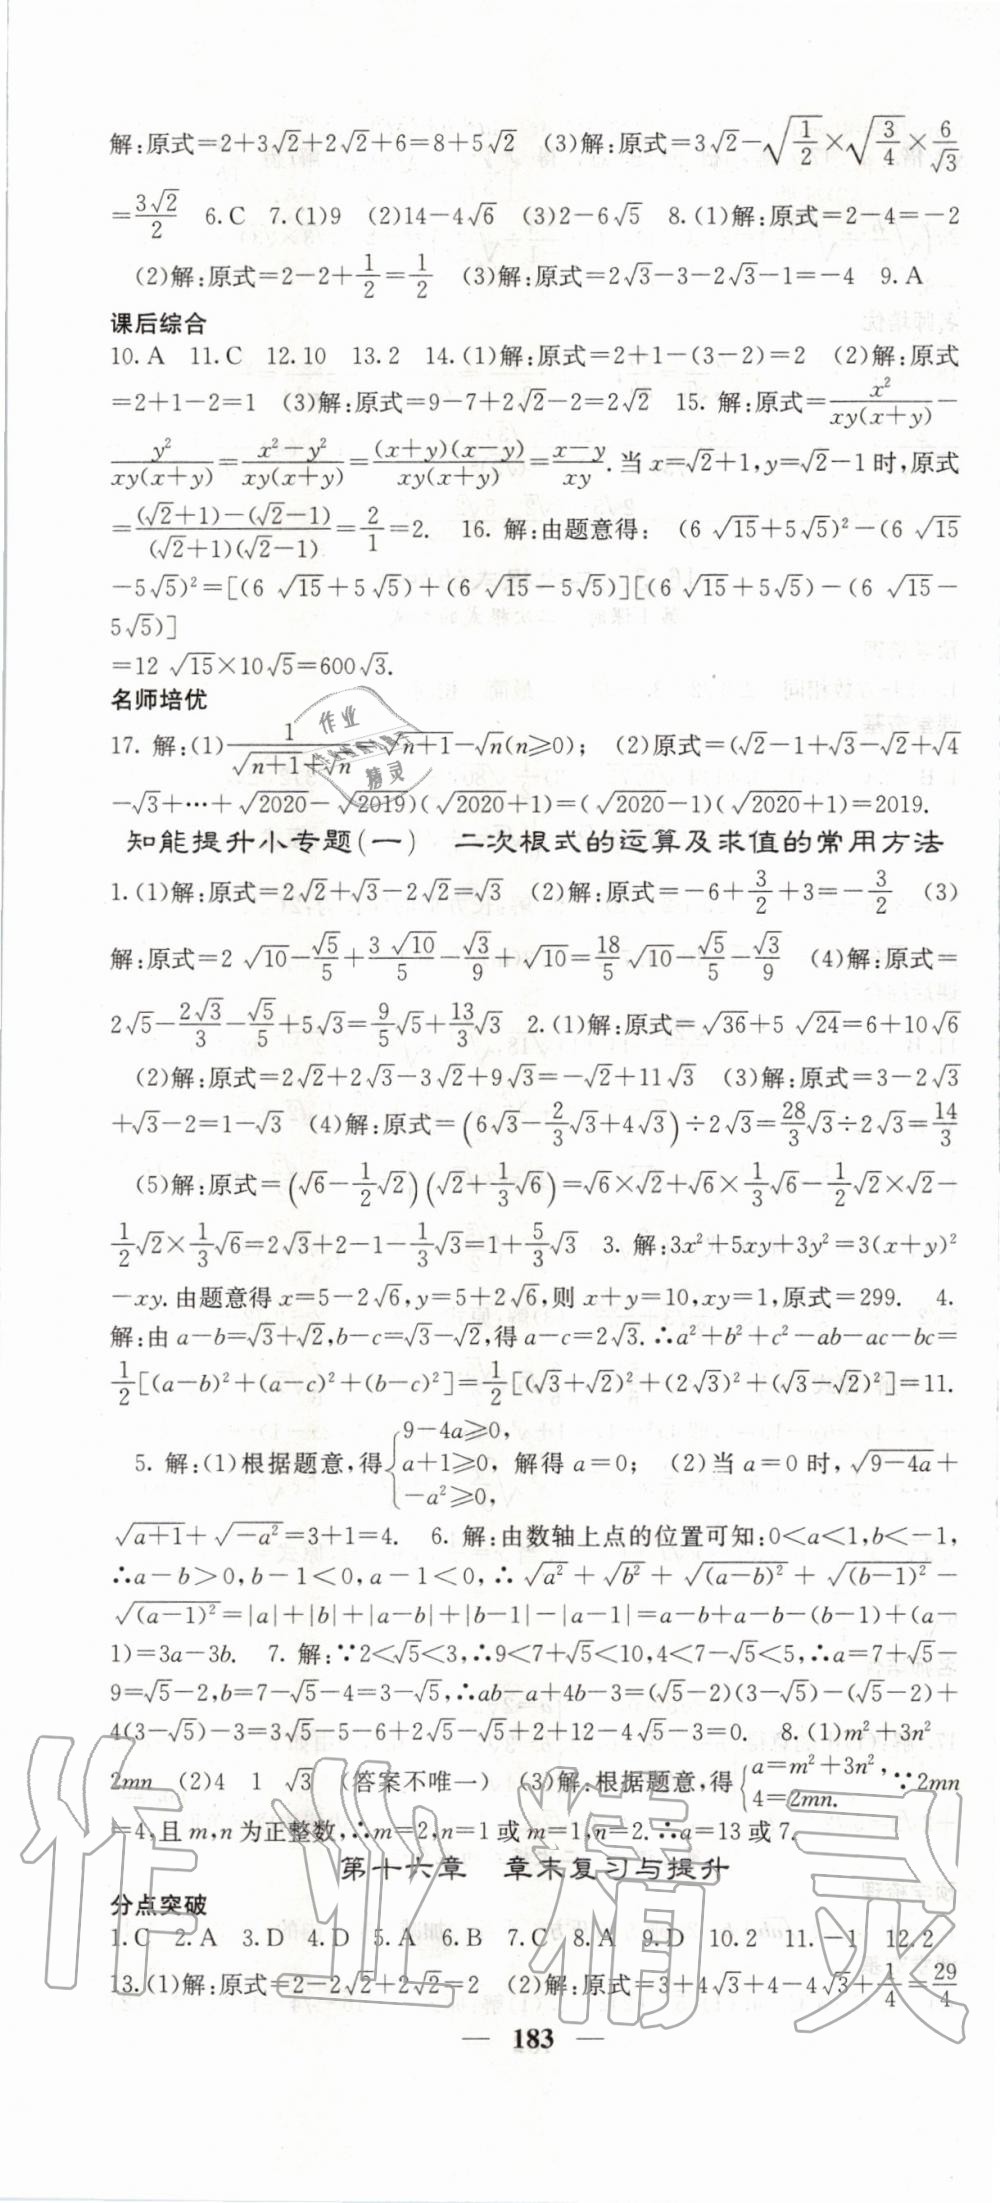 解:原式=2+3√2+2√2+6=8+5√2 (3)解:原式=3√2-√(1/2)×√(3/4)×6/√3
=3√2/2 6.C 7.(1)9 (2)14-4√6 (3)2-6√5 8.(1)解:原式=2-4=-2
(2)解:原式=2-2+1/2=1/2 (3)解:原式=2√3-3-2√3-1=-4 9.A
课后综合
10.A 11.C 12.10 13.2 14.(1)解:原式=2+1-(3-2)=2 (2)解:原式
=2+1-2=1 (3)解:原式=9-7+2√2-2=2√2 15. 解:原式=x²/xy(x+y)-
y²/xy(x+y)=x²-y²/xy(x+y)=(x+y)(x-y)/xy(x+y)=x-y/xy.当x=√2+1,y=√2-1时,原式
=(√2+1)-(√2-1)/(√2+1)(√2-1)=2/1=2. 16. 解:由题意得: (6√15+5√5)²-(6√15
-5√5)²=[(6√15+5√5)+(6√15-5√5)][(6√15+5√5)-(6√15-
5√5)]
=12√15×10√5=600√3.
名师培优
17. 解:(1)1/(√n+1+√n)=√n+1-√n(n≥0); (2)原式=(√2-1+√3-√2+√4
-√3+…+√2020-√2019)(√2020+1)=(√2020-1)(√2020+1)=2019.
知能提升小专题(一) 二次根式的运算及求值的常用方法
1.(1)解:原式=2√2+√3-2√2=√3 (2)解:原式=-6+3/2+3=-3/2 (3)
解:原式=2√10-√5/5+3√10/5-√3/9+√10=18/5√10-√5/5-√3/9 (4)解:原式=
2√5-2√3/3-√5/5+5√3=9/5√5+13/3√3 2.(1)解:原式=√36+5√24=6+10√6
(2)解:原式=2√2+2√3-3√2+9√3=-√2+11√3 (3)解:原式=3-2√3
+√3-2=1-√3 (4)解:原式=(6√3-2/3√3+4√3)÷2√3=28/3√3÷2√3=14/3
(5)解:原式=(√6-1/2√2)(√2+1/3√6)=√6×√2+√6×1/3√6-1/2√2×√2-
1/2√2×1/3√6=2√3+2-1-1/3√3=1+5/3√3 3. 解:3x²+5xy+3y²=3(x+y)²
-xy.由题意得x=5-2√6,y=5+2√6,则x+y=10,xy=1,原式=299. 4.
解:由a-b=√3+√2,b-c=√3-√2,得a-c=2√3.∴a²+b²+c²-ab-ac-bc=
1/2[(a-b)²+(a-c)²+(b-c)²]=1/2[(√3+√2)²+(2√3)²+(√3-√2)²]=11.
5. 解:(1)根据题意,得{9-4a≥0, a+1≥0, -a²≥0, 解得a=0; (2)当a=0时,√9-4a+
√a+1+√-a²=3+1=4. 6. 解:由数轴上点的位置可知:0<a<1,b<-1,
∴a-b>0,b-1<0,a-1<0,∴√a²+√b²+√(a-b)²+√(b-1)²-
√(a-1)²=|a|+|b|+|a-b|+|b-1|-|a-1|=a-b+a-b-(b-1)+(a-
1)=3a-3b. 7. 解:∵2<√5<3,∴9<7+√5<10,4<7-√5<5,∴a=7+√5-
9=√5-2,b=7-√5-4=3-√5,∴ab-a+4b-3=(√5-2)(3-√5)-(√5-2)+
4(3-√5)-3=3√5-5-6+2√5-√5+2+12-4√5-3=0. 8.(1)m²+3n²
2mn (2)4 1 √3 (答案不唯一) (3)解:根据题意,得{a=m²+3n², 4=2mn. ∵2mn
=4,且m,n为正整数,∴m=2,n=1或m=1,n=2.∴a=13或7.
第十六章 章末复习与提升
分点突破
1.C 2.A 3.D 4.D 5.A 6.B 7.C 8.A 9.D 10.2 11.-1 12.2
13.(1)解:原式=2-2√2+2√2=2 (2)解:原式=3+4√3+4-4√3+1/4=29/4
— 183 —
作业精灵